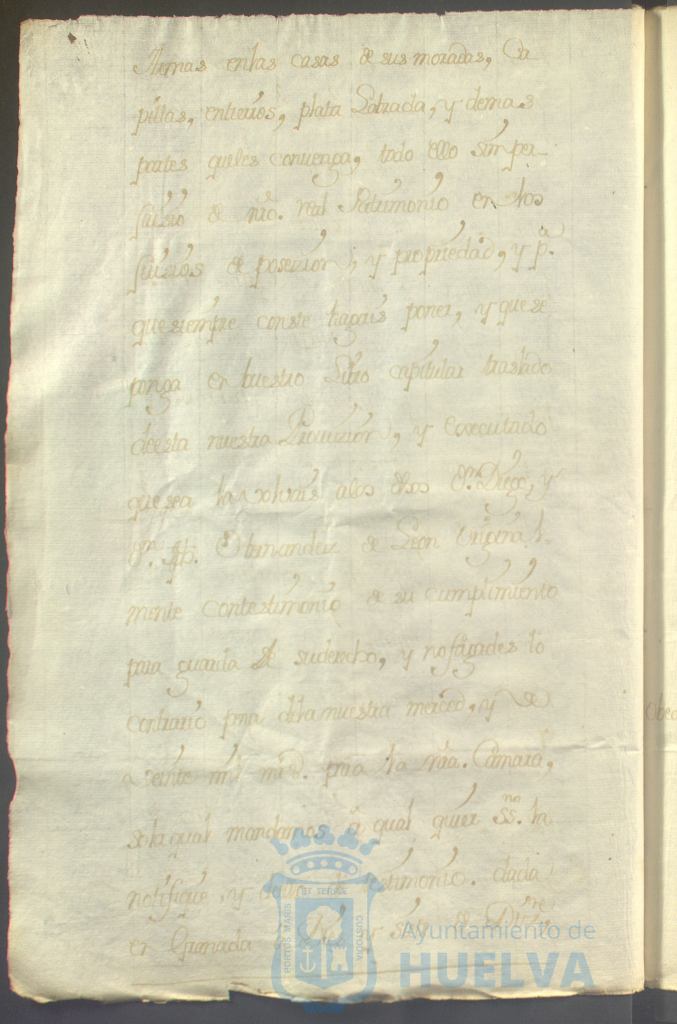 Armas enlas casas de sus moradas, Ca
pillas, entierros, plata Labrada, y demas
partes queles convenga, todo ello sin per-
juizio de nro. real Patrimonio en los
juizios de posesion, y propriedad, y pa.
que siempre conste hagais poner, y que se
ponga en vuestro Libro capitular traslado
de esta nuestra Provizion, y executado
que sea la volvais alos dhos Dn. Diego, y
Dn. Hernandez de Leon original-
mente contestimonio de su cumplimiento
para guarda de suderecho, y nofagades lo
contrario pena dela nuestra merced, y de
a veinte mil mrs. para la nra. Camara,
sola qual mandamos a qual quier ssno. la
notifique, y de testimonio. dada
en Granada a Diez y siete de Dizre
Obed
Ayuntamiento de
HUELVA
PORTUS MARIS
ET TERRAE
CUSTODIA